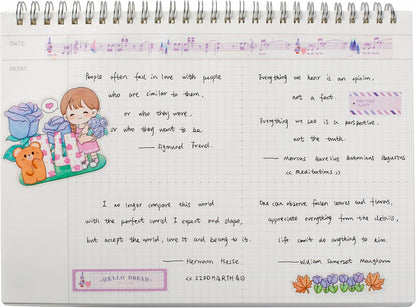 DATE:
MEMO
People often fall in love with people
who are similar to them,
or who they were,
or who they want to be.
—— Sigmund Freud.
I no longer compare this world
with the perfect world I expect and shape,
but accept the world, love it and belong to it.
—— Hermann Hesse
<<SIDDHARTHA>>
-HELLO DREAM-
Everything we hear is an opinion,
not a fact.
Everything we see is a perspective,
not the truth.
—— Marcus Aurelius Antoninus Augustus
<<Meditations>>
One can observe fallen leaves and flowers,
appreciate everything from the details,
life can't do anything to him.
—— William Somerset Maugham